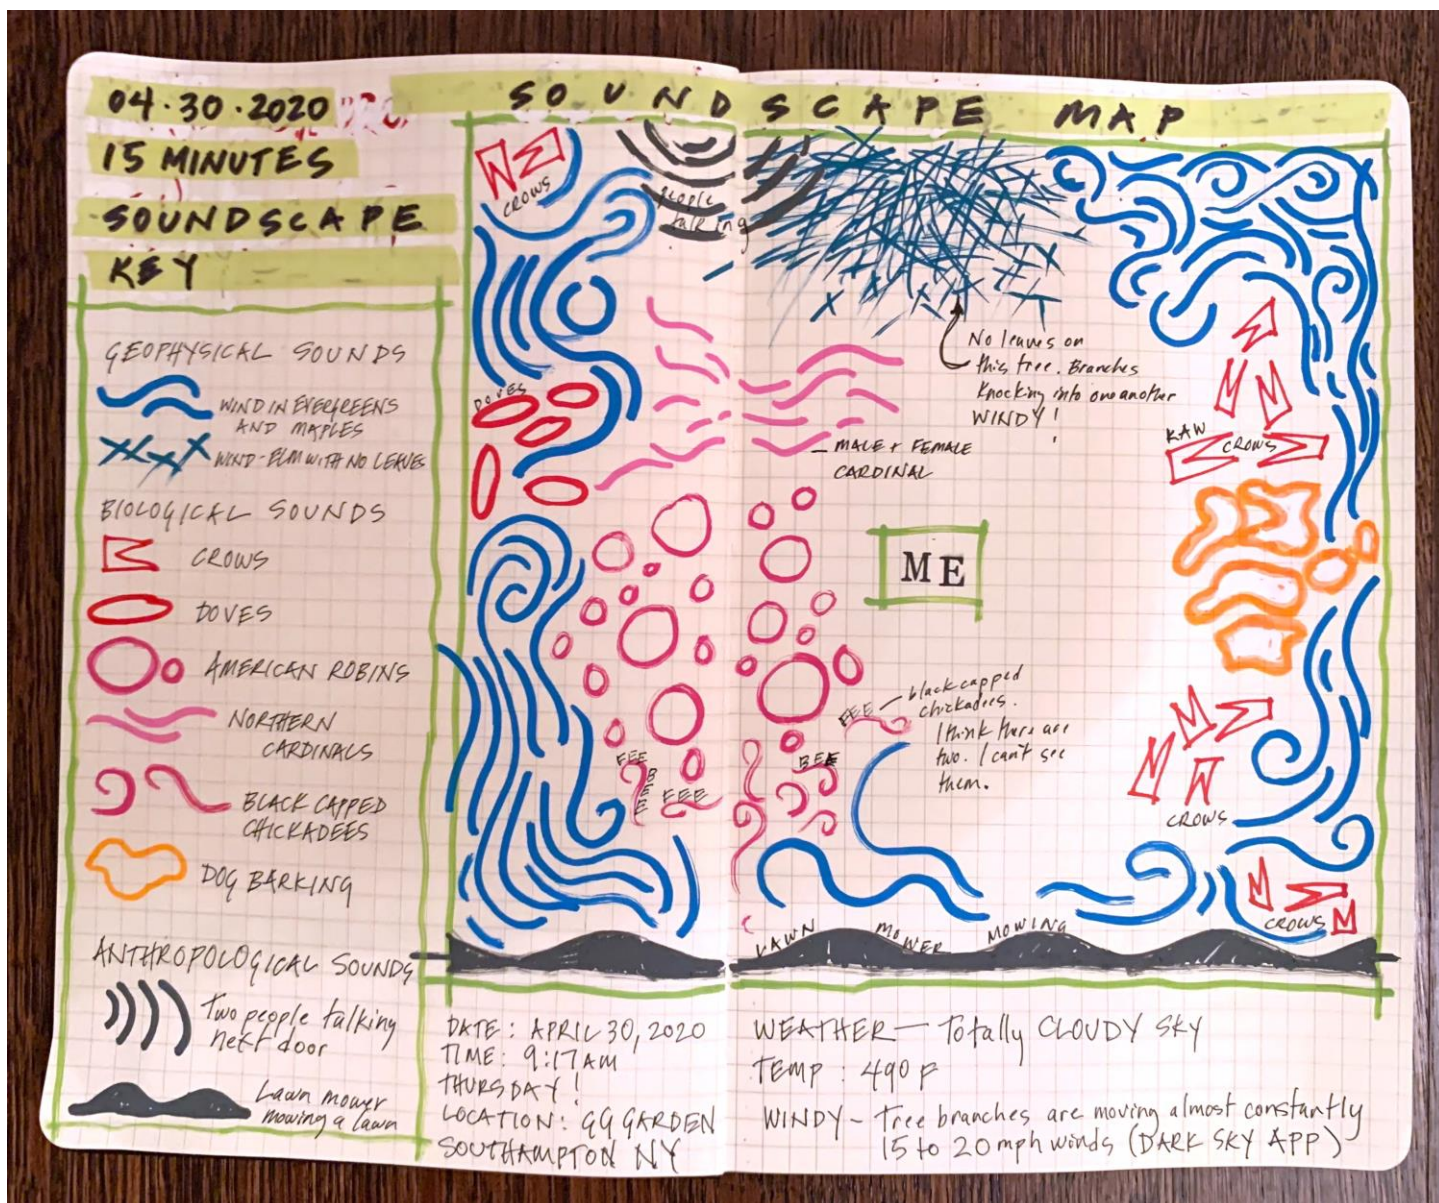 04·30·2020
15 MINUTES
SOUNDSCAPE
KEY
GEOPHYSICAL SOUNDS
WIND IN EVERGREENS
AND MAPLES
WIND-ELM WITH NO LEAVES
BIOLOGICAL SOUNDS
CROWS
DOVES
AMERICAN ROBINS
NORTHERN
CARDINALS
BLACK CAPPED
CHICKADEES
DOG BARKING
ANTHROPOLOGICAL SOUNDS
Two people talking
next door
Lawn mower
mowing a lawn
SOUNDSCAPE MAP
CROWS
people
talking
No leaves on
this tree. Branches
knocking into one another
WINDY!
DOVES
MALE + FEMALE
CARDINAL
KAW
CROWS
ME
black capped
chickadees.
I think there are
two. I can't see
them.
EEE
FEE
BEEE
FEE
BEE
CROWS
CROWS
LAWN MOWER MOWING
DATE: APRIL 30, 2020
TIME: 9:17AM
THURSDAY!
LOCATION: GG GARDEN
SOUTHAMPTON NY
WEATHER — Totally CLOUDY SKY
TEMP: 49° F
WINDY – Tree branches are moving almost constantly
15 to 20 mph winds (DARK SKY APP)